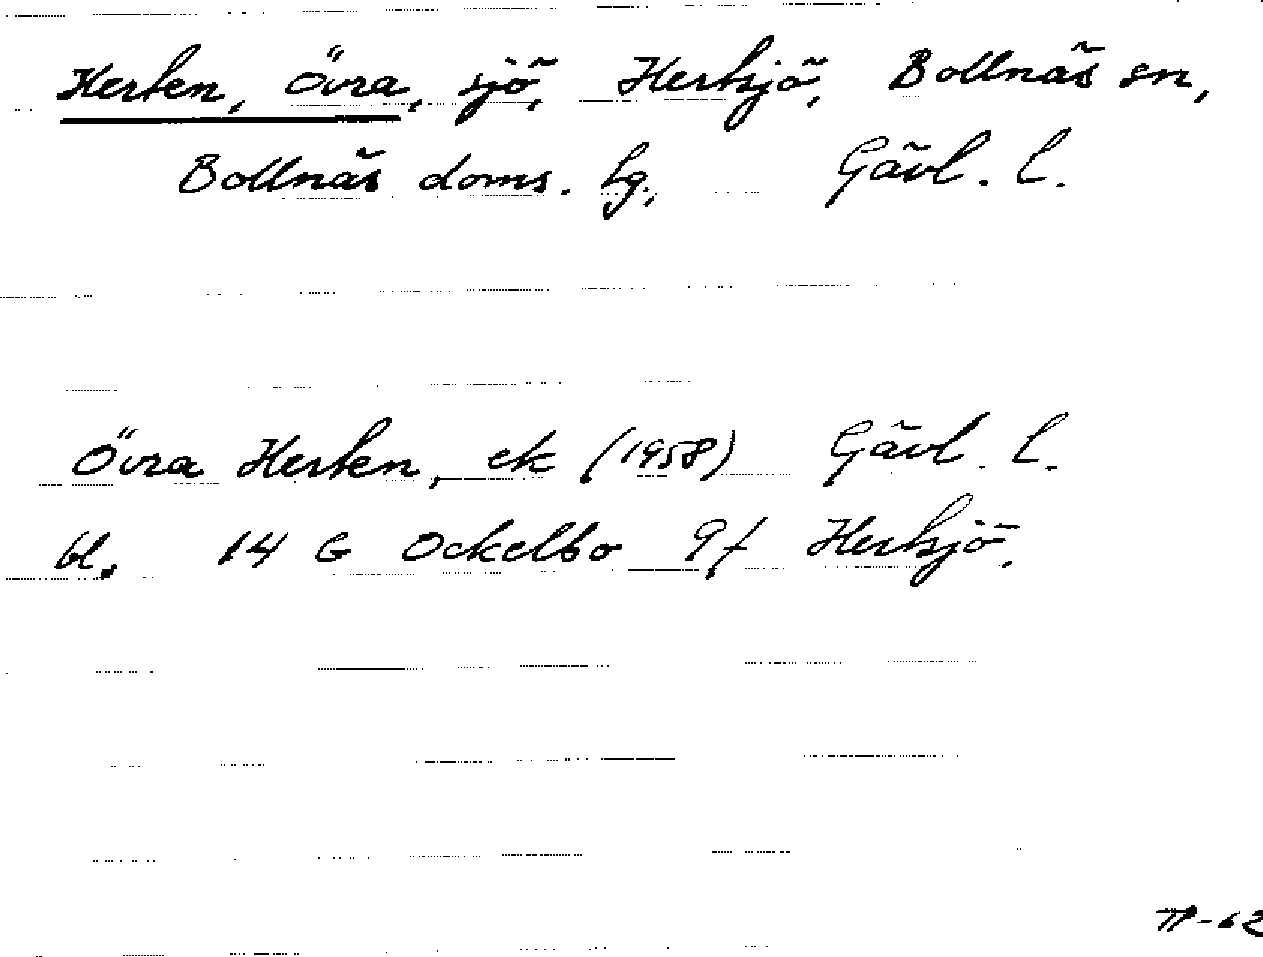 Herten, Övra, sjö, Hertsjö, Bollnäs sn,
Bollnäs doms. hg., Gävl. l.
Övra Herten, ek (1958) Gävl. l.
bl. 14 G Ockelbo 9f Hertsjö.
-62